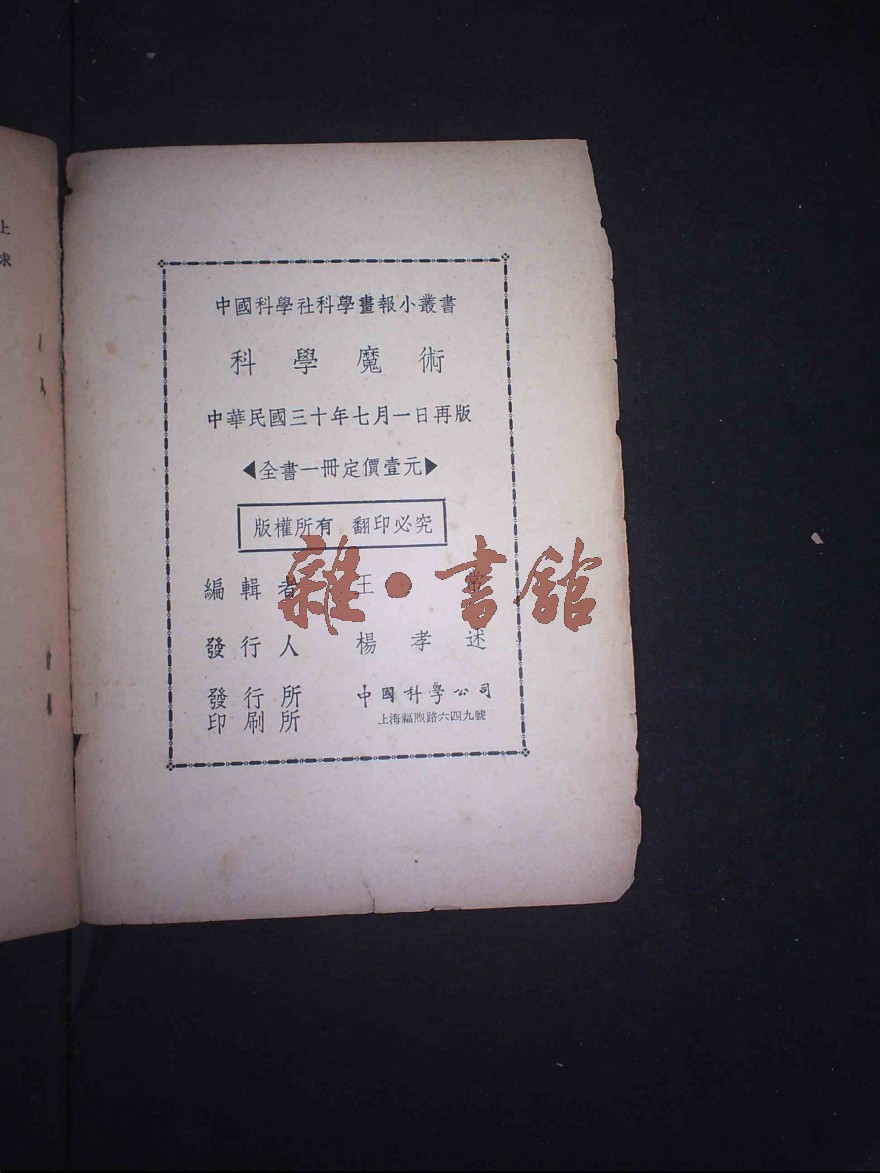 上
求
中國科學社科學畫報小叢書
科學魔術
中華民國三十年七月一日再版
◀全書一冊定價壹元▶
版權所有 翻印必究
編輯者 王
發行人 楊孝述
發行所 中國科學公司
印刷所 上海福煦路六四九號
雜·書館